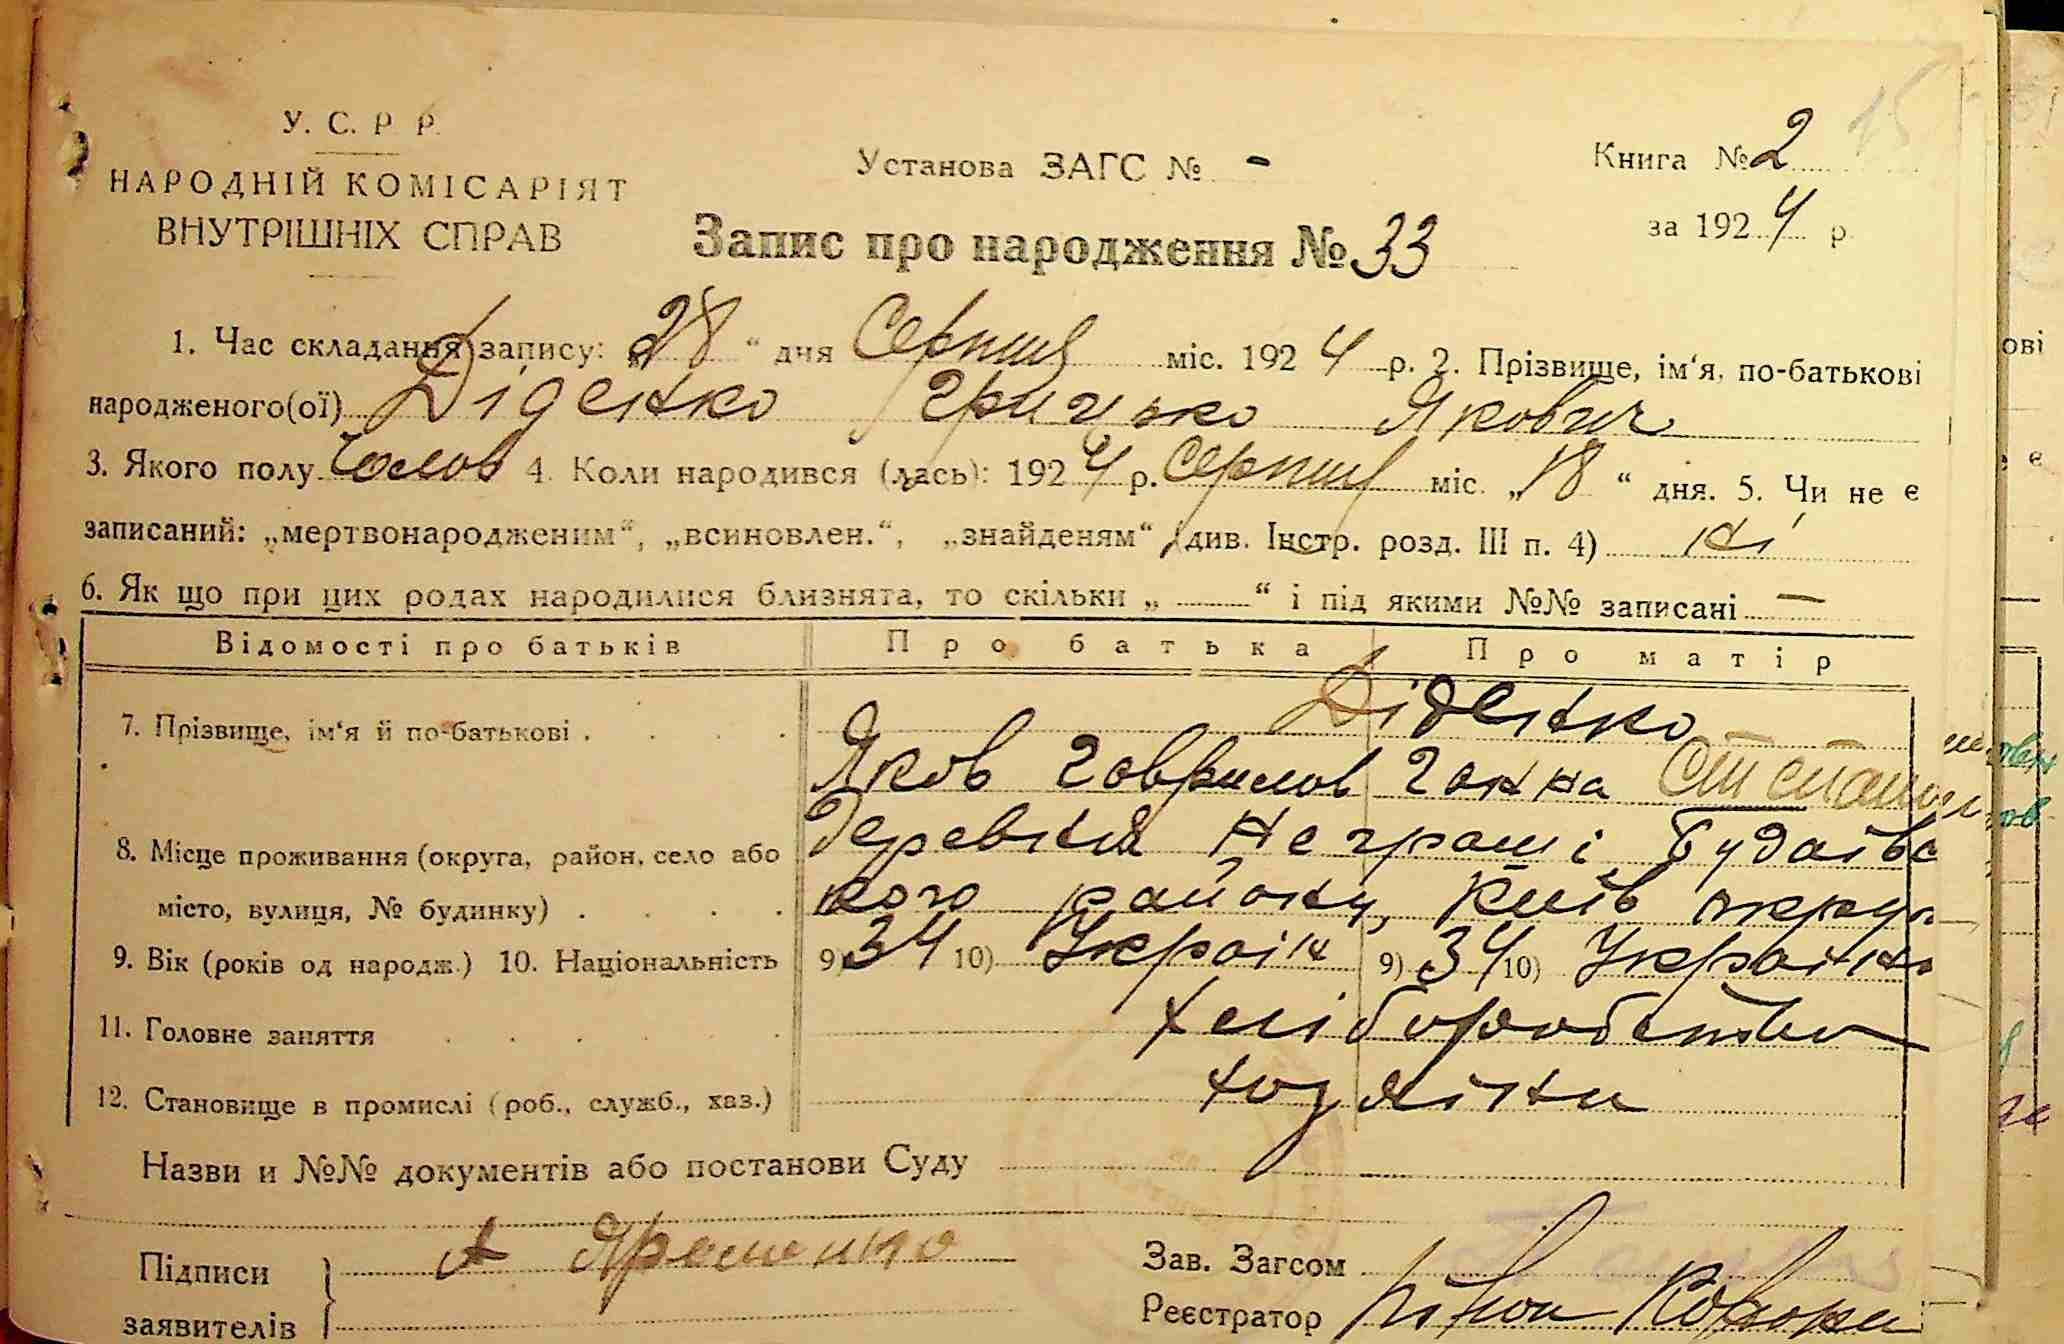 15
У. С. Р. Р.
НАРОДНІЙ КОМІСАРІЯТ
ВНУТРІШНІХ СПРАВ
Установа ЗАГС № -
Книга № 2
за 1924 р.
Запис про народження № 33
1. Час складання запису: „28“ дня Серпня міс. 1924 р. 2. Прізвище, ім‘я, по-батькові
народженого(ої) Діденко Грицько Якович
3. Якого полу Чолов 4. Коли народився (лась): 1924 р. Серпня міс. „18“ дня. 5. Чи не є
записаний: „мертвонародженим“, „всиновлен.“, „знайденям“ (див. Інстр. розд. III п. 4) ні
6. Як що при цих родах народилися близнята, то скільки „ —— “ і під якими №№ записані —
Відомості про батьків Про батька Про матір
Діденко
7. Прізвище, ім‘я й по-батькові . . . . Яков Гаврилов Ганна
8. Місце проживання (округа, район, село або Деревня Неграші Будаївс
місто, вулиця, № будинку) . . . . кого району, Київ округи
9. Вік (років од народж.) 10. Національність 9) 34 10) Україн 9) 34 10) Українка
11. Головне заняття . . . . . хліборобство
12. Становище в промислі (роб., служб., хаз.) хозяїни
Назви и №№ документів або постанови Суду
Підписи А Яременко
заявителів
Зав. Загсом
Реєстратор